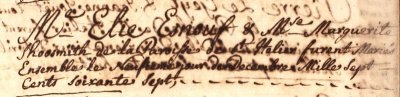 Mr. Elie Esnouf & Mse. Marguerite
Shoosmith de la Paroisse de St. Helier furent Mariè
Ensemble le Neufieme jour de Decembre Mille Sept
Cents soixante sept,